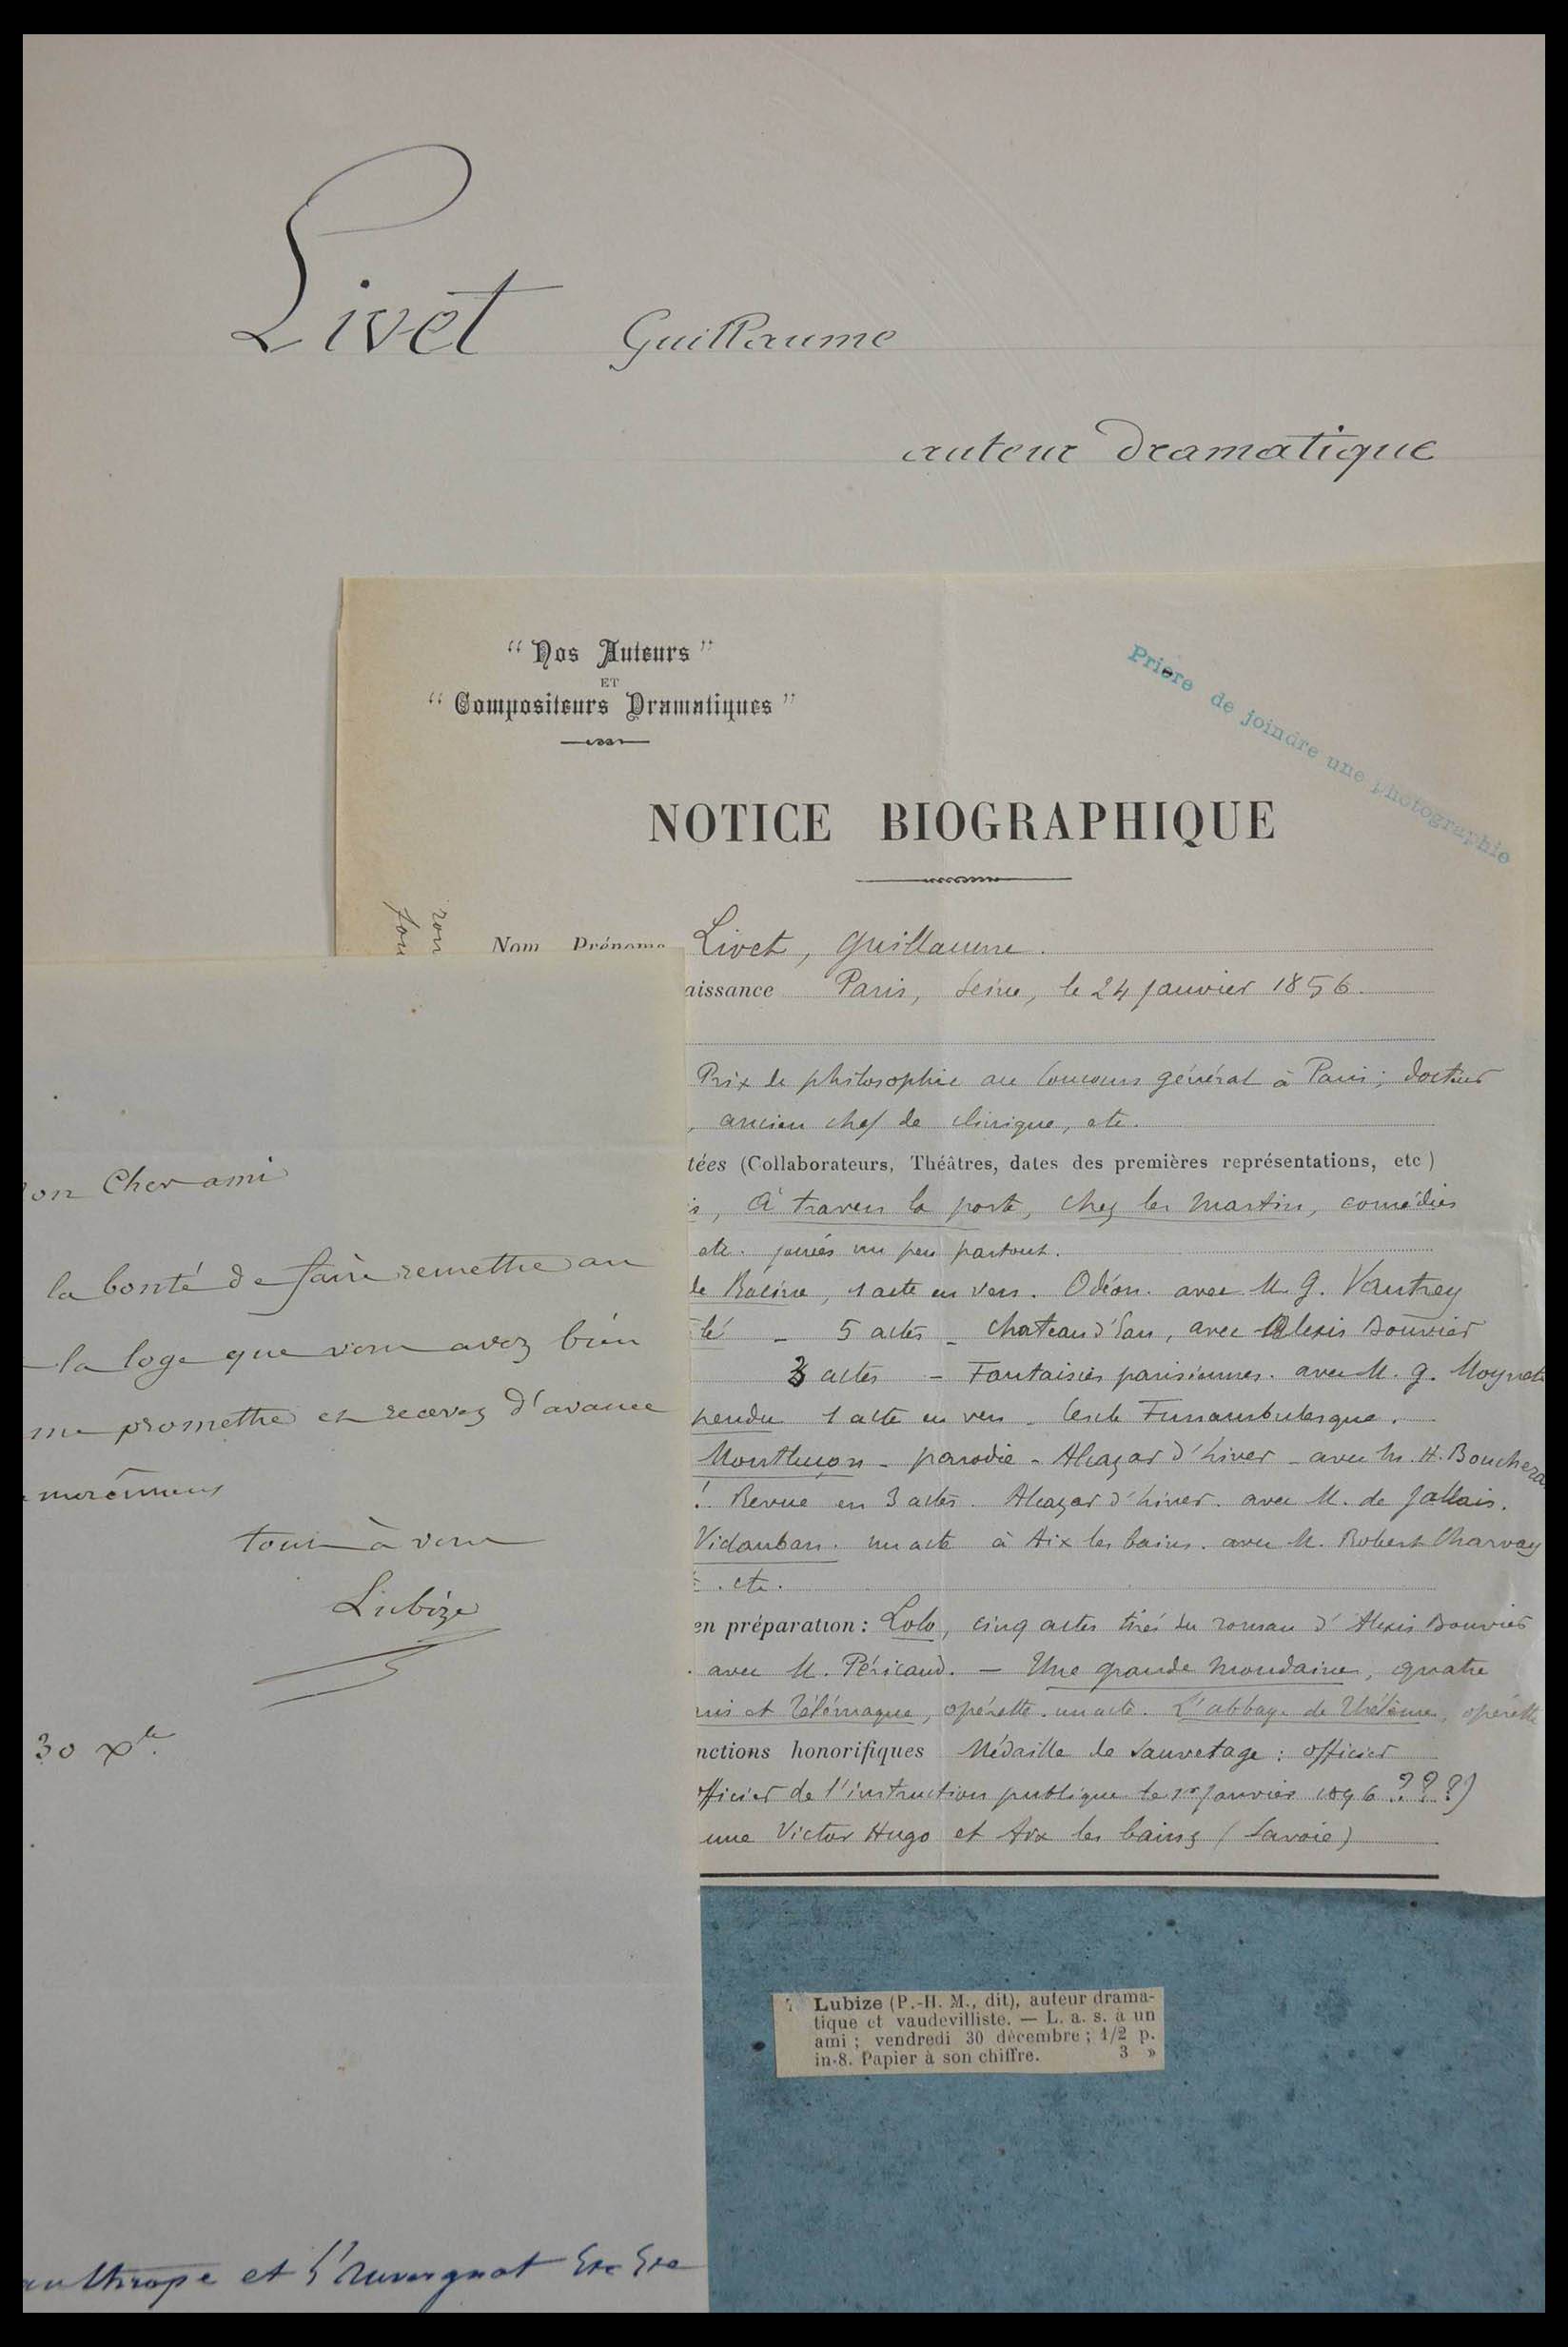 Livet Guillaume
auteur dramatique
“ Nos Auteurs ”
ET
“ Compositeurs Dramatiques ”
Prière de joindre une photographie
NOTICE BIOGRAPHIQUE
Nom Prénoms Livet, Guillaume.
aissance Paris, Seine, le 24 Janvier 1856.
Prix de philosophie au Concours général à Paris ; docteur
, ancien chef de clinique, etc.
tées (Collaborateurs, Théâtres, dates des premières représentations, etc )
, A travers la porte, Chez les Martin, comédies
etc. jouées un peu partout.
de Racine, 1 acte en vers. Odéon. avec M. G. Vautrey
té – 5 actes – Chateau d'Eau, avec Alexis Bouvier
3 actes – Fantaisies parisiennes. avec M. G. Moynet
pendu 1 acte en vers – Cercle Funambulesque.
Montluçon – parodie – Alcazar d'hiver – avec M. H. Bouchera
! Revue en 3 actes. Alcazar d'hiver. avec M. de Jallais.
Vidauban. un acte à Aix les bains. avec M. Robert Charvay
. etc.
en préparation : Lolo, cinq actes tirés du roman d'Alexis Bouvier
. avec M. Péricaud. – Une grande Mondaine, quatre
ris et Télémaque, opérette. un acte. L'abbaye de Thélème, opérette
nctions honorifiques Médaille de Sauvetage : officier
fficier de l'instruction publique le 1er Janvier 1896 ???)
une Victor Hugo et Aix les bains (Savoie)
on Cher ami
la bonté de faire remettre au
la loge que vous avez bien
me promettre et recevez d'avance
tout à vous
Lubize
30 Xbre
anthrope et l'Auvergnat Etc Etc
Lubize (P.-H. M., dit), auteur drama-
tique et vaudevilliste. — L. a. s. à un
ami ; vendredi 30 décembre ; 1/2 p.
in-8. Papier à son chiffre. 3 »